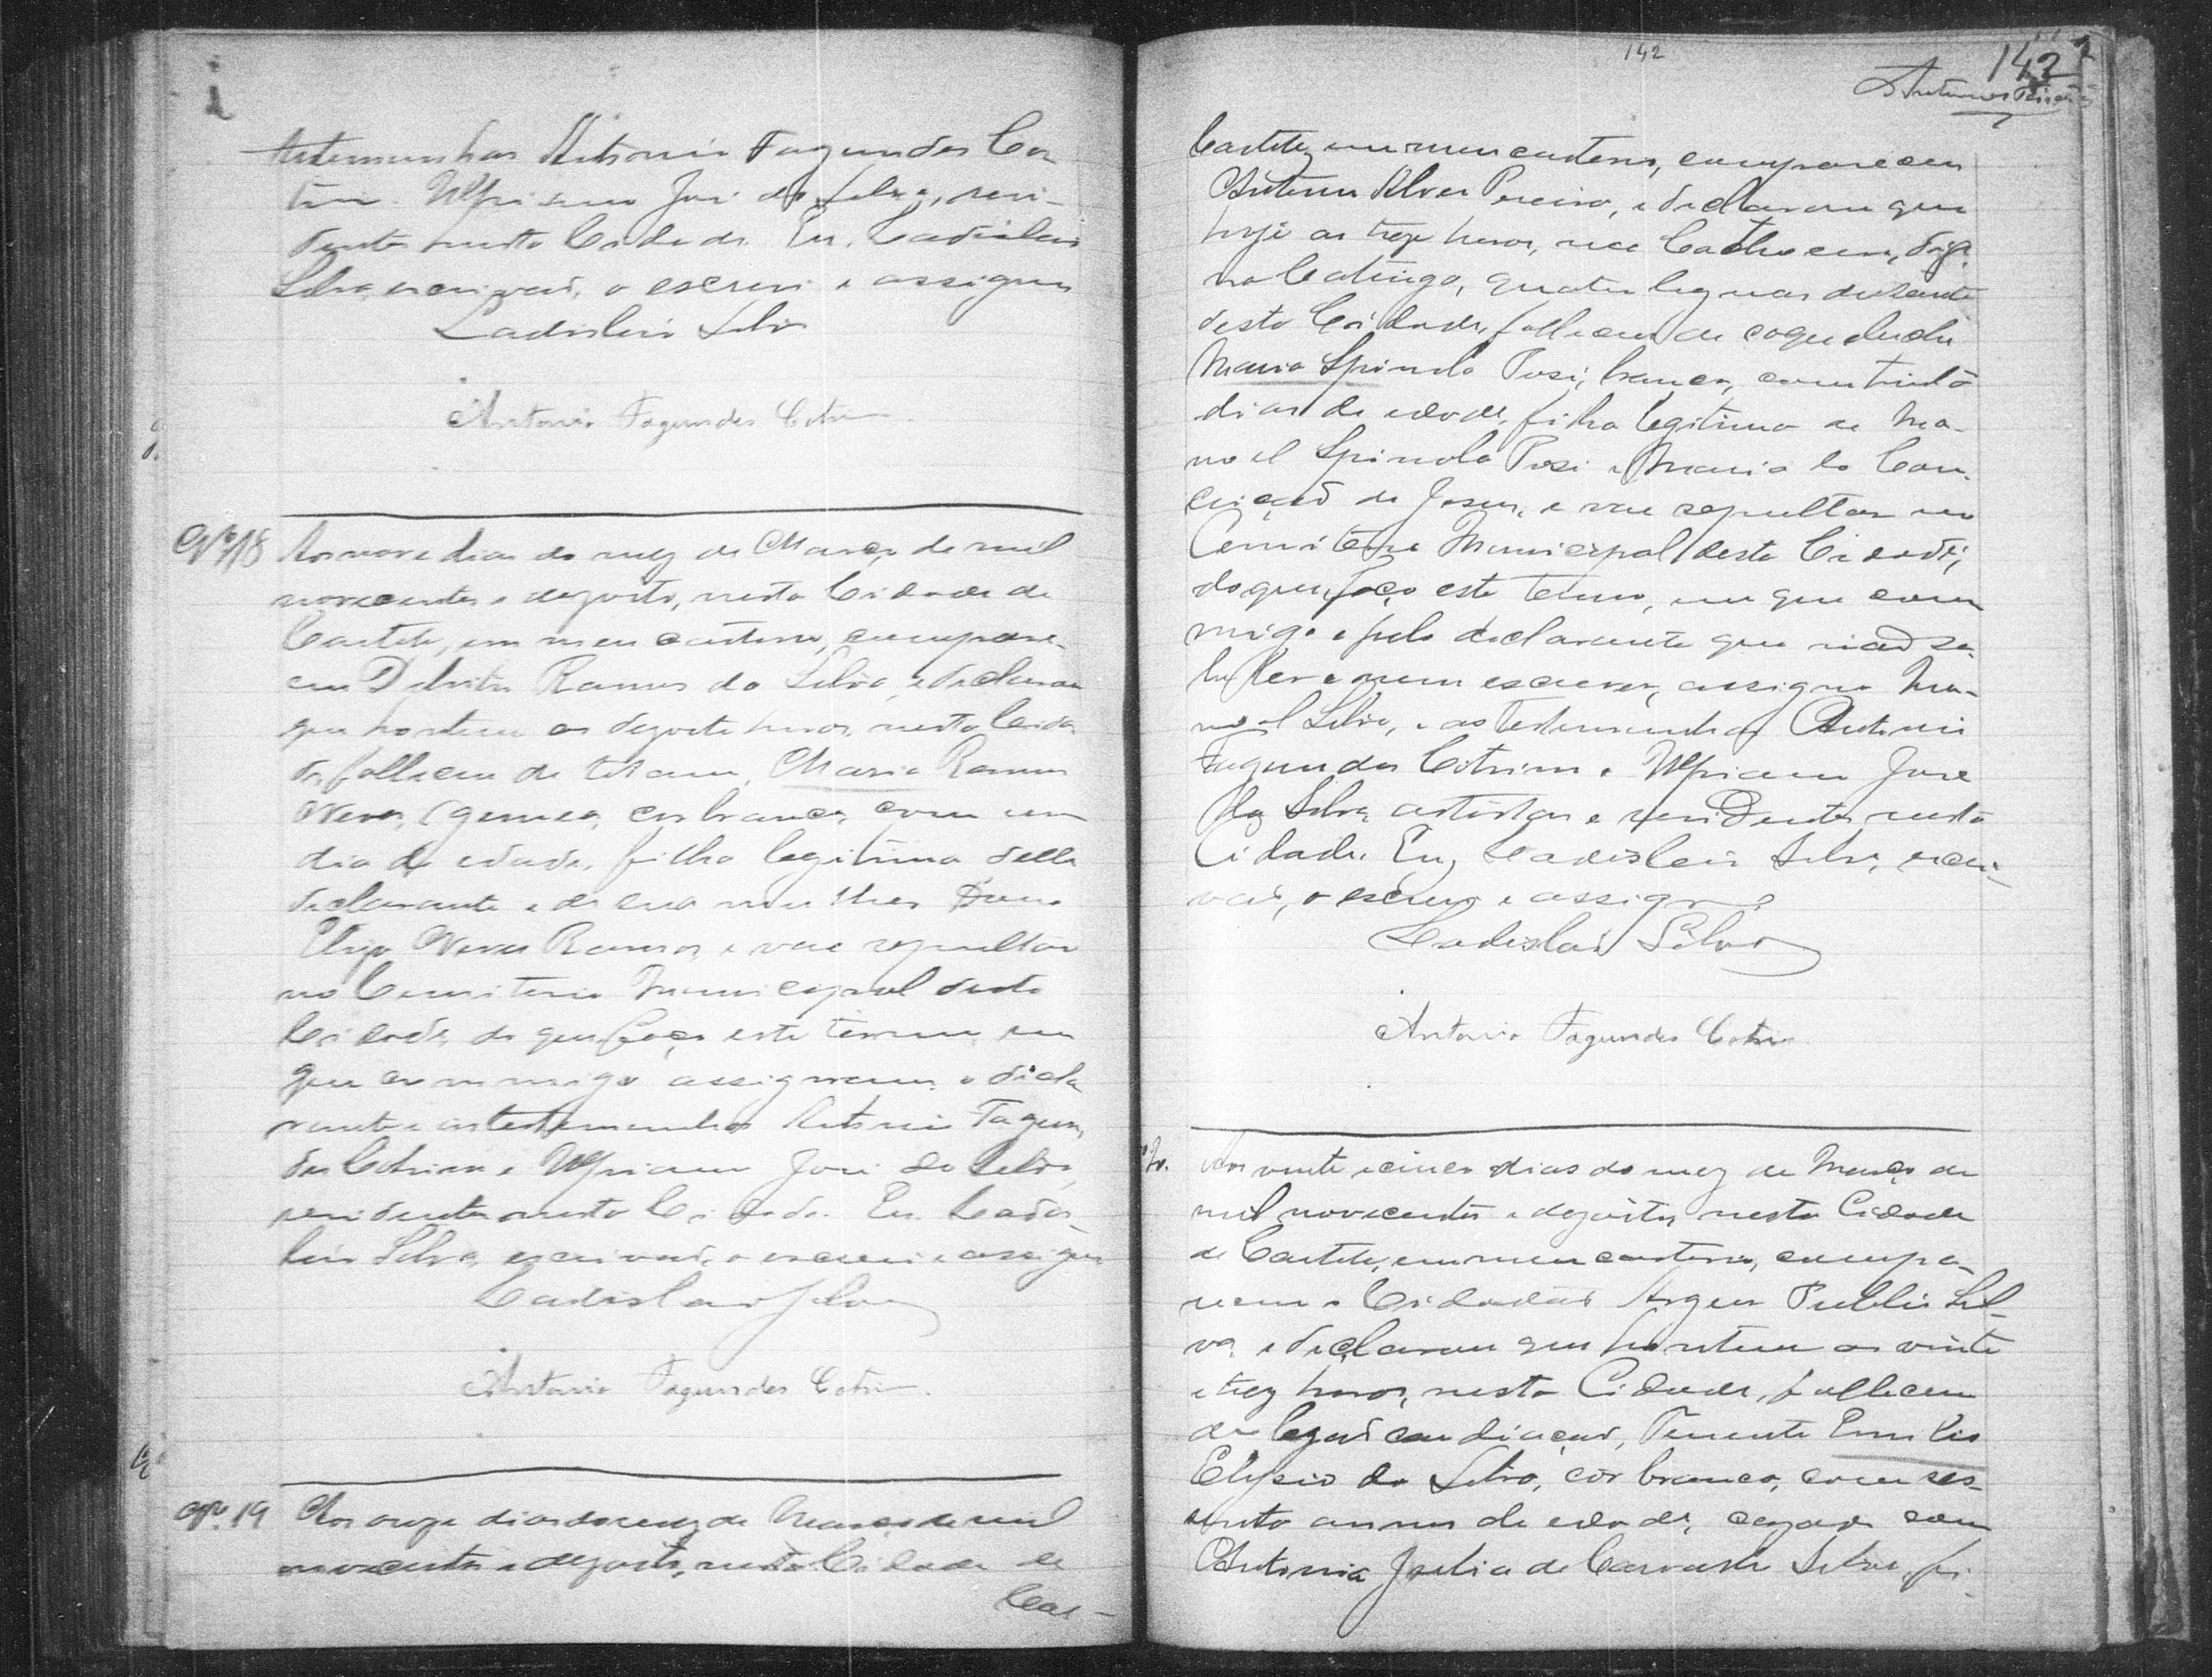 testemunhas Antonio Fagundes Co-
trim José da Silva, resi-
dentes nesta Cidade. Eu, Ladislau
Silva, escrivão, o escrevi e assigno
Ladislau Silva
Antonio Fagundes Cotrim
Nº 18 Aos nove dias do mez de Março de mil
novecentos e dezoito, nesta Cidade de
Caeteté, em meu cartorio, compare-
ceu Ramos da Silva, e declarou
que hontem as dezoito horas, nesta Cida-
de, falleceu de tetano, Maria Ramos
Neves, (gemea, cor branca, com um
dia de edade, filha legitima delle
declarante e de sua mulher Dona
Neves Ramos, e vae sepultar
no Cemiterio Municipal desta
Cidade, do que faço este termo em
que commigo assignam o decla-
rante e as testemunhas Antonio Fagun-
des Cotrim e José da Silva,
residentes nesta Cidade. Eu, Ladis-
lau Silva, escrivão, o escrevi e assigno
Ladislau Silva
Antonio Fagundes Cotrim.
Nº 19 Aos onze dias do mez de Março de mil
novecentos e dezoito, nesta Cidade de
Cae-
142
142
Caeteté, em meu cartorio, compareceu
Antonio Alves Pereira, e declarou que
hoje as treze horas, na Cachoeira,
na Catinga, quatro leguas distante
desta Cidade, falleceu de coqueluche
Maria Spinola, branca, com trinta
dias de edade, filha legitima de Ma-
noel Spinola e Maria da Con-
ceição de Jesus, e vae sepultar no
Cemiterio Municipal desta Cidade;
do que faço este termo, em que com-
migo e pelo declarante que não sa-
be ler e nem escrever, assigna Ma-
noel Silva, e as testemunhas Antonio
Fagundes Cotrim e José
da Silva, artistas e residentes nesta
Cidade. Eu, Ladislau Silva, escri-
vão, o escrevi e assigno
Ladislau Silva
Antonio Fagundes Cotrim.
Aos vinte e cinco dias do mez de Março de
mil novecentos e dezoito, nesta Cidade
de Caeteté, em meu cartorio, compa-
receu o Cidadão Publio Sil-
va, e declarou que hontem as vinte
e trez horas, nesta Cidade, falleceu
de, Tenente Emilio
Elysio da Silva, cor branca, com ses-
senta annos de edade, cazado com
Antonia Julia de Carvalho Silva, fi-